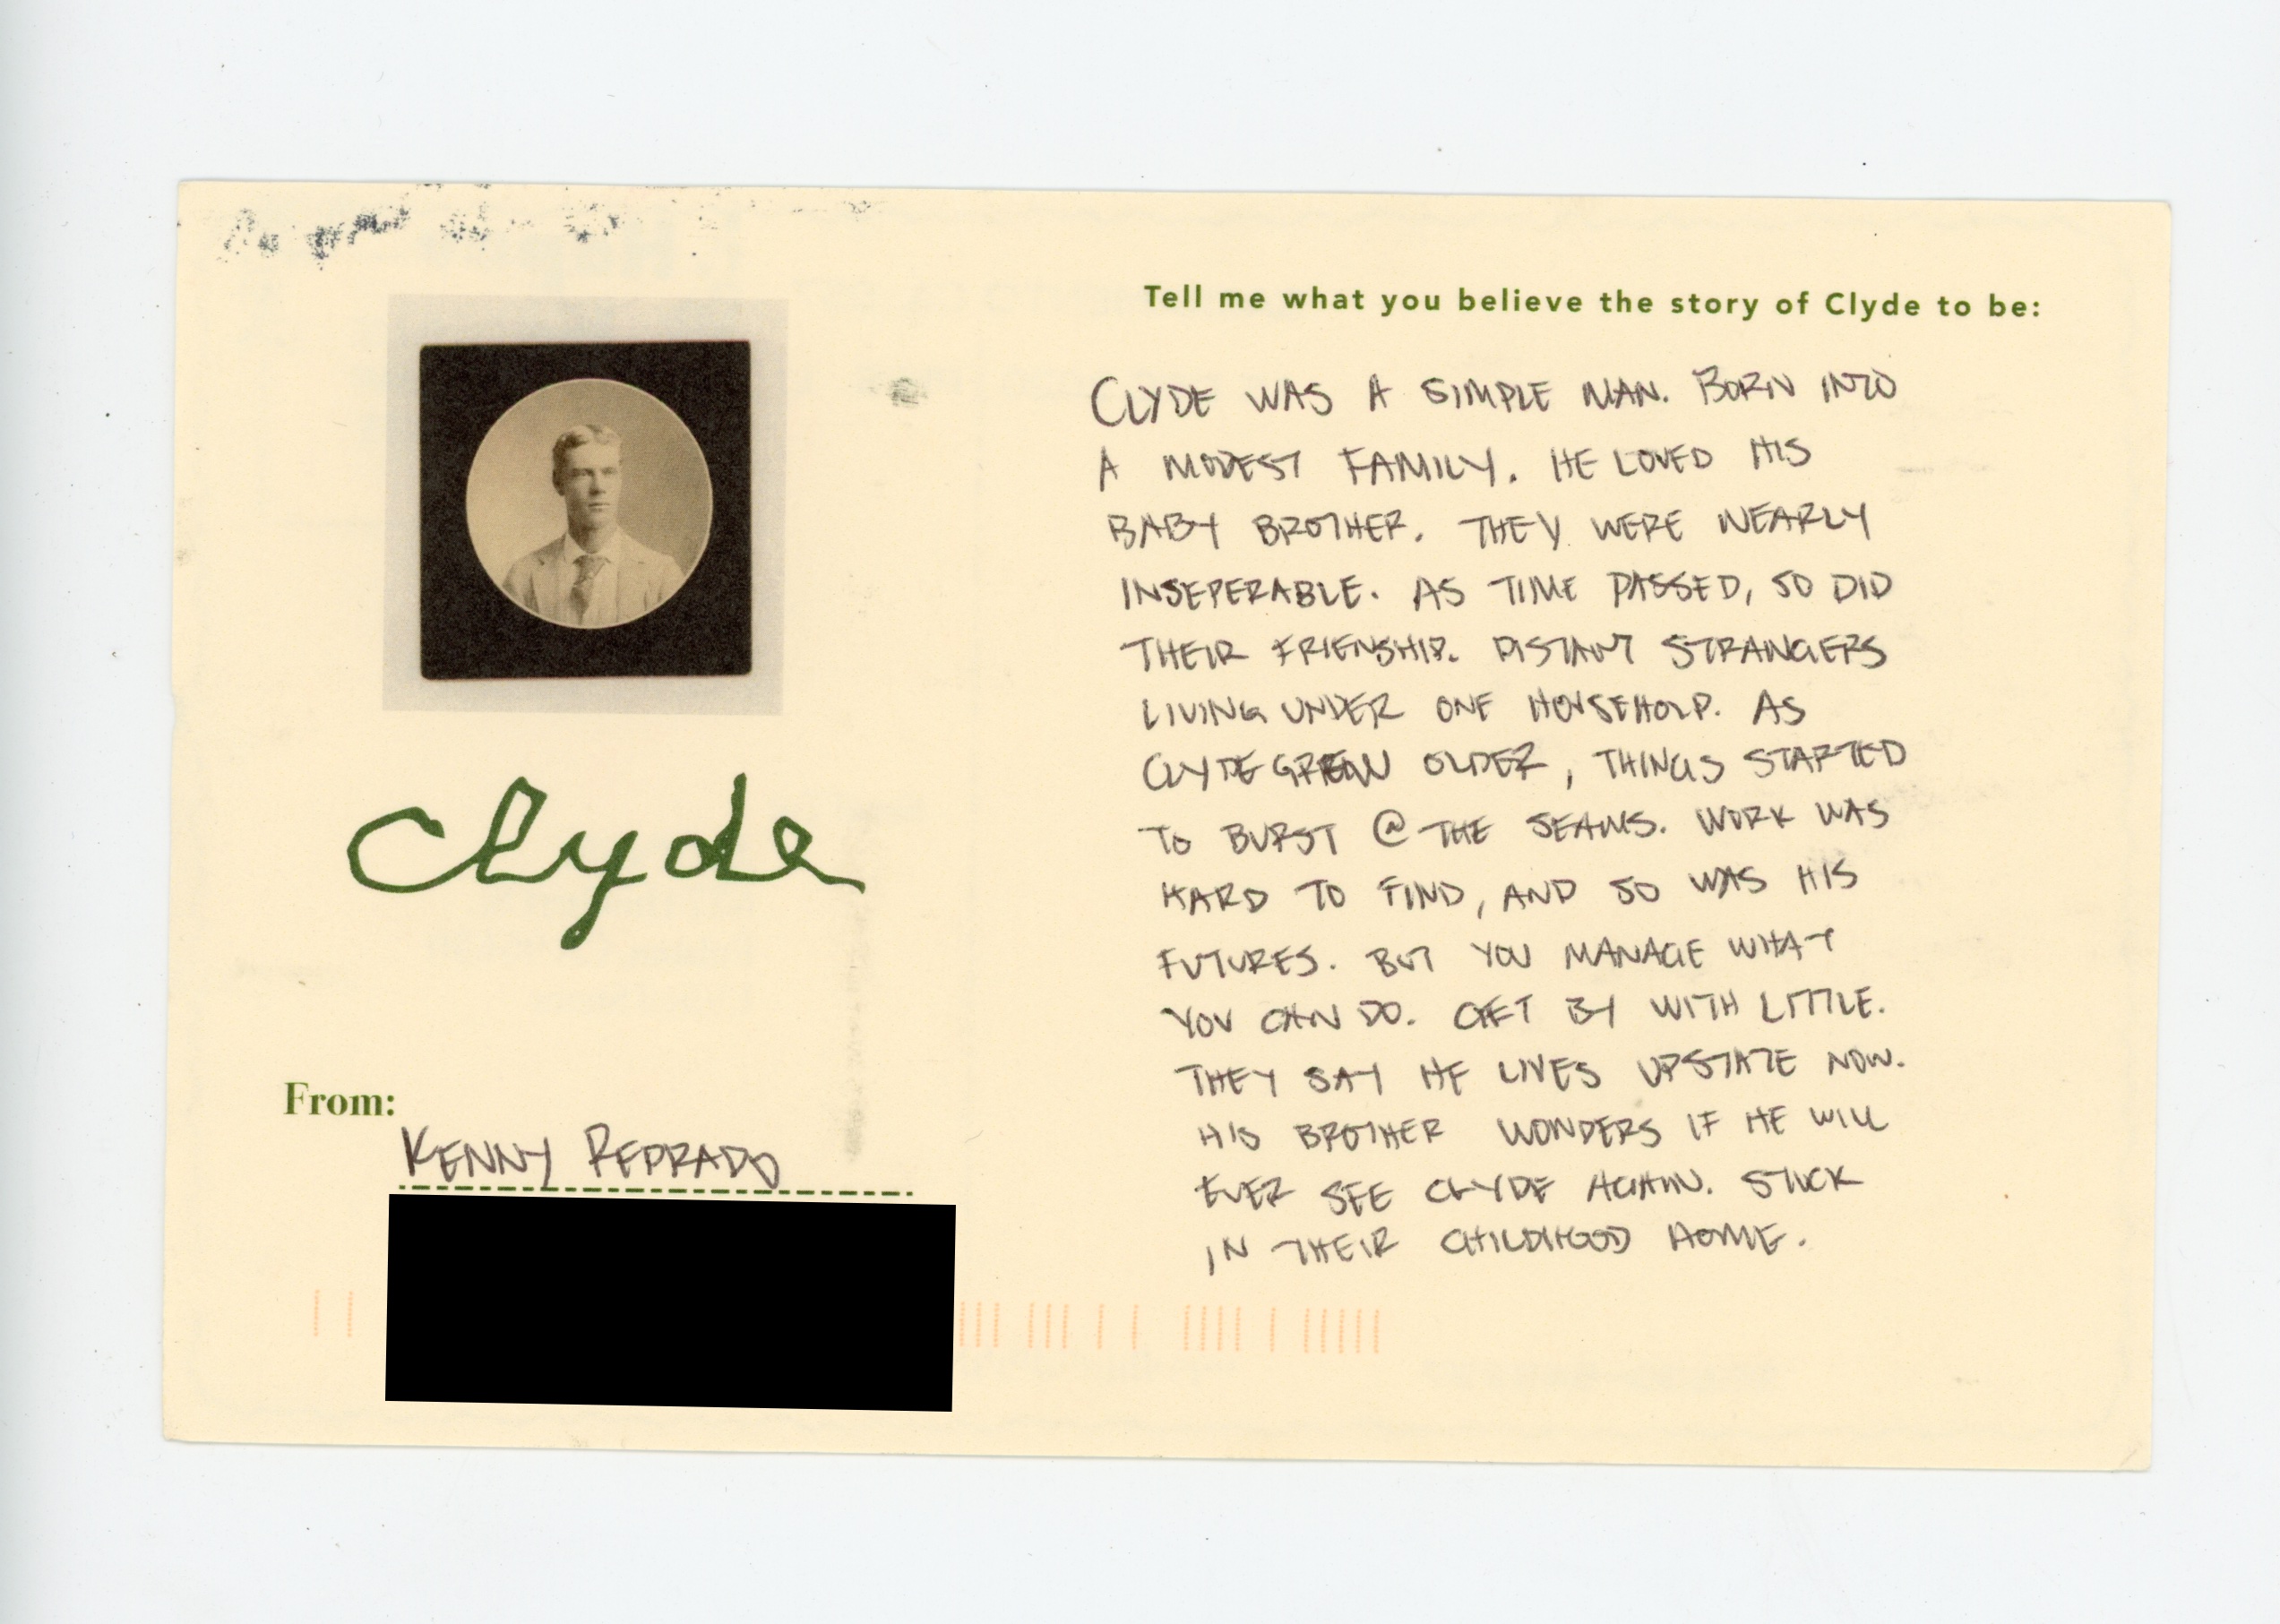 Tell me what you believe the story of Clyde to be:
CLYDE WAS A SIMPLE MAN. BORN INTO
A MODEST FAMILY. HE LOVED HIS
BABY BROTHER. THEY WERE NEARLY
INSEPERABLE. AS TIME PASSED, SO DID
THEIR FRIENSHIP. DISTANT STRANGERS
LIVING UNDER ONE HOUSEHOLD. AS
CLYDE GREW OLDER, THINGS STARTED
TO BURST @ THE SEAMS. WORK WAS
HARD TO FIND, AND SO WAS HIS
FUTURES. BUT YOU MANAGE WHAT
YOU CAN DO. GET BY WITH LITTLE.
THEY SAY HE LIVES UPSTATE NOW.
HIS BROTHER WONDERS IF HE WILL
EVER SEE CLYDE AGAIN. STUCK
IN THEIR CHILDHOOD HOME.
Clyde
From:
KENNY REDRADO